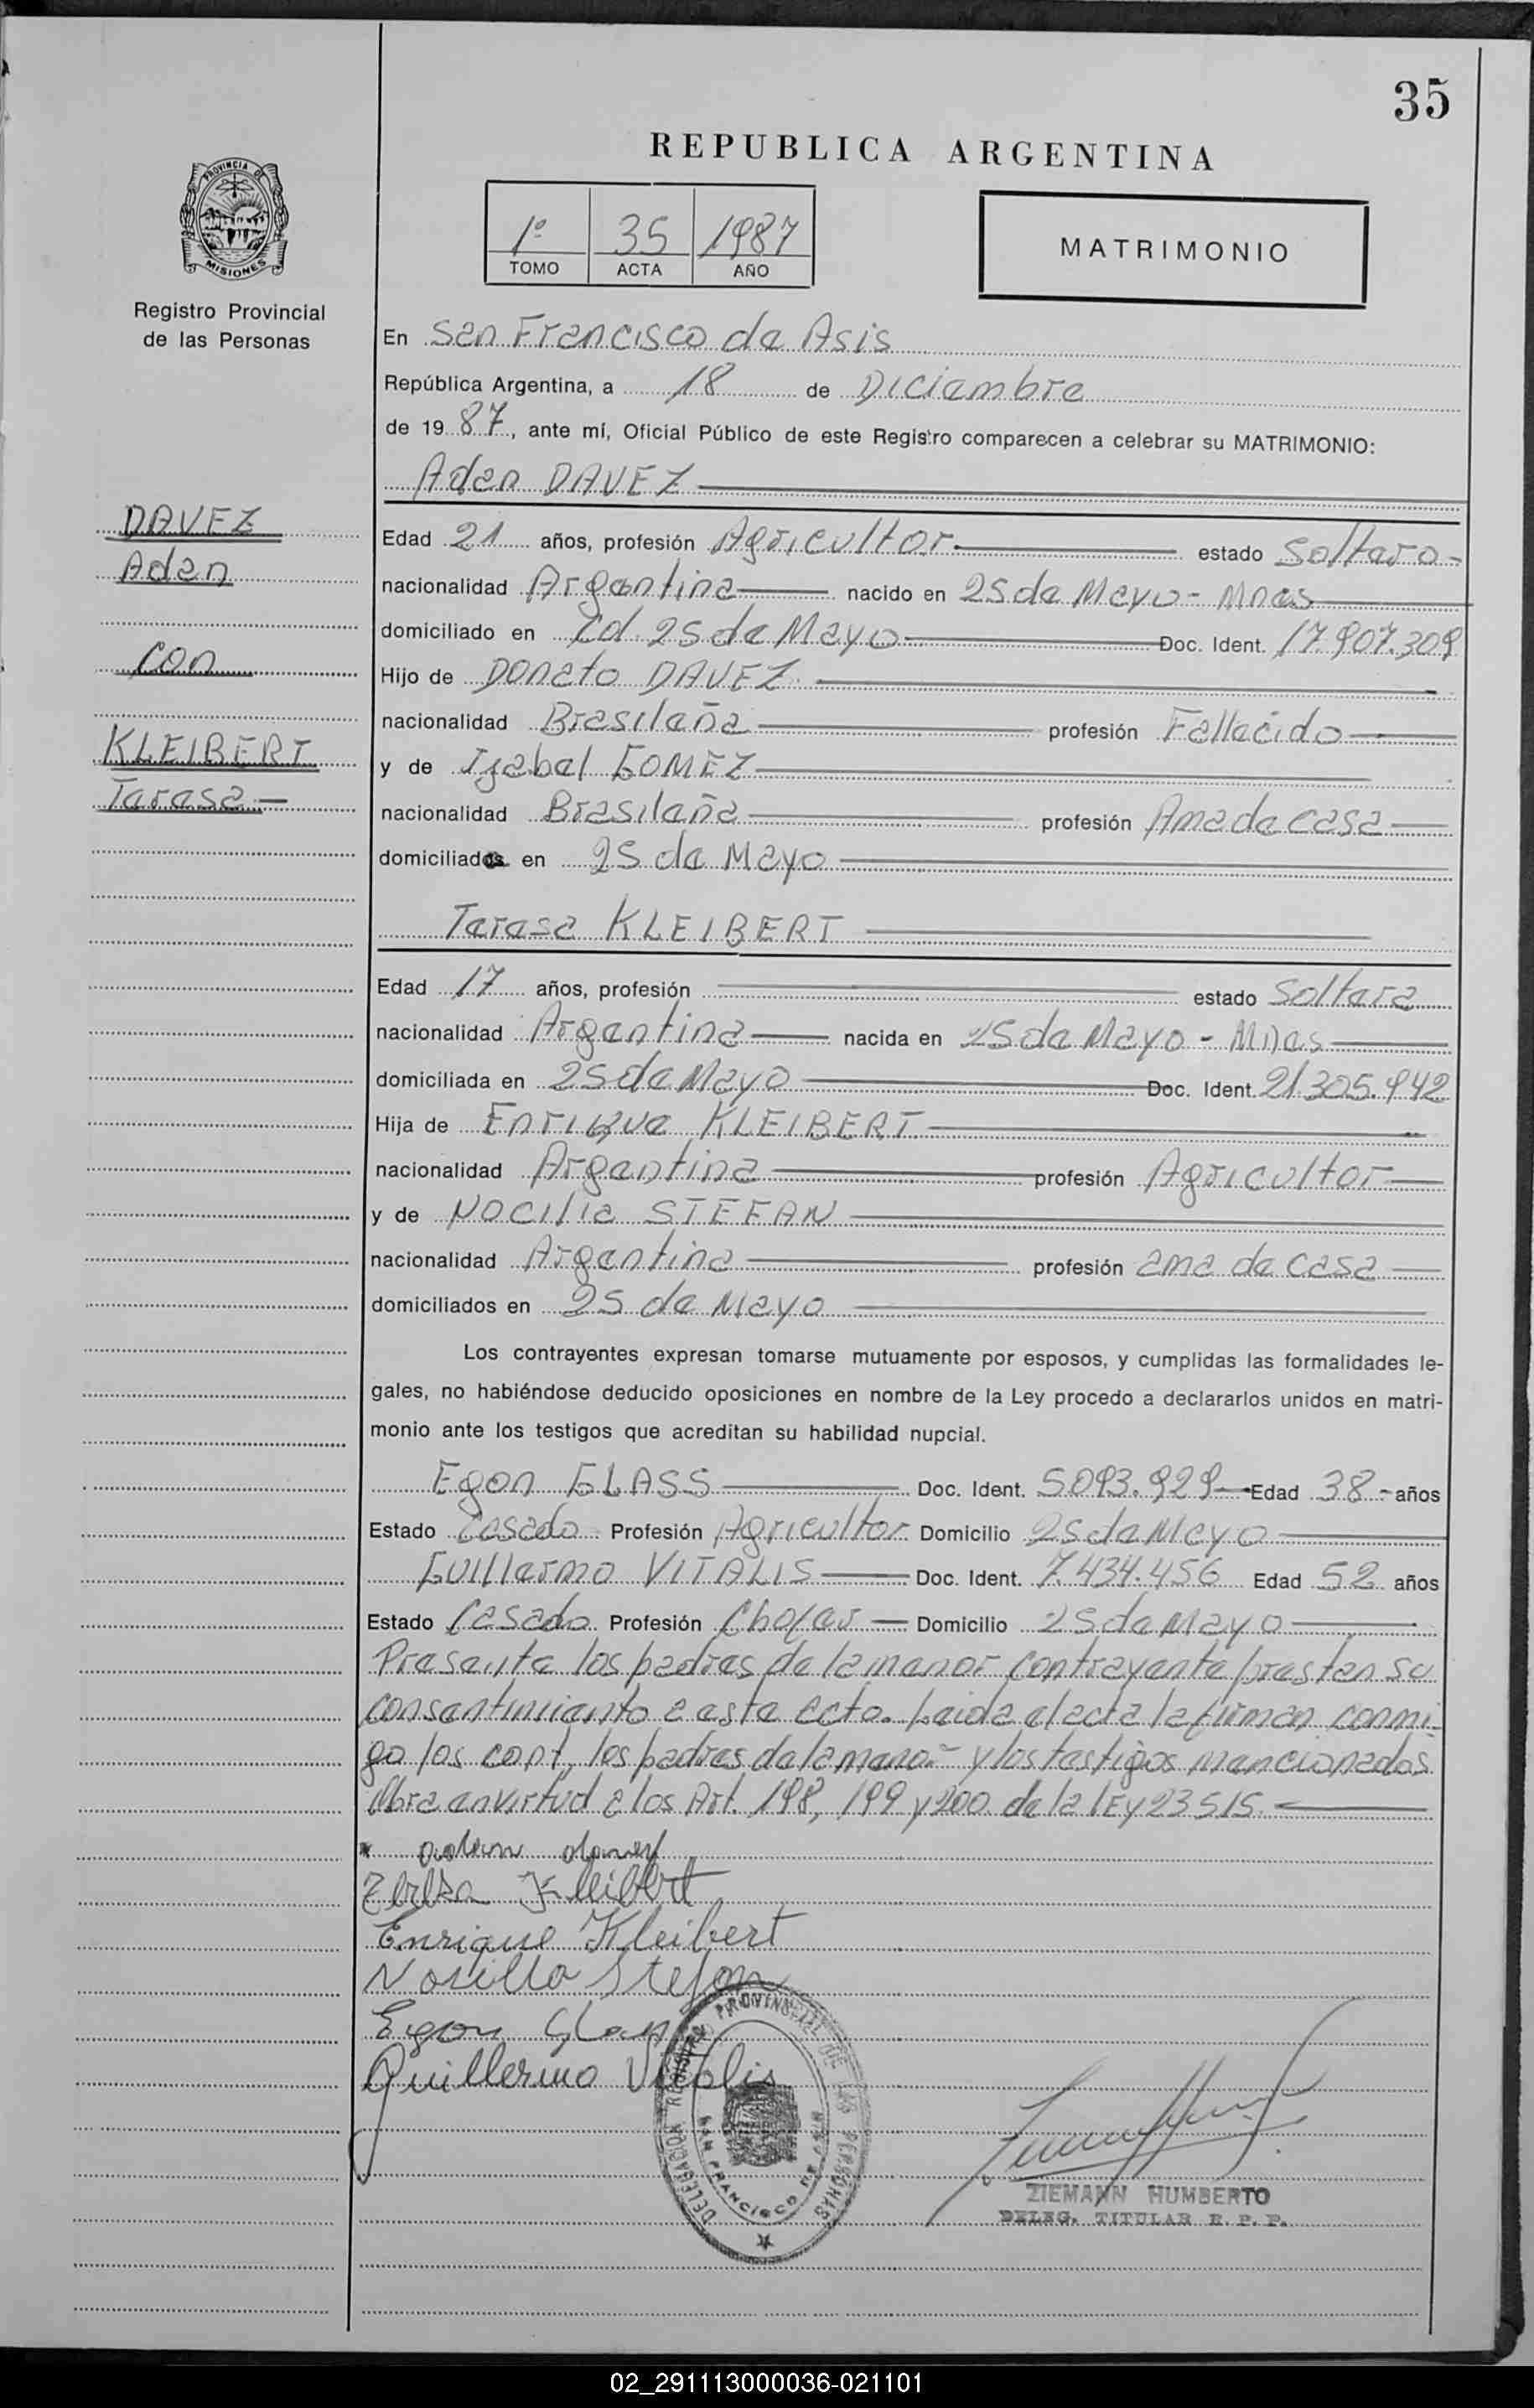 35
REPUBLICA ARGENTINA
PROVINCIA DE
MISIONES
1º 35 1987
TOMO ACTA AÑO
MATRIMONIO
Registro Provincial
de las Personas
En San Francisco de Asis
República Argentina, a 18 de Diciembre
de 1987, ante mí, Oficial Público de este Registro comparecen a celebrar su MATRIMONIO:
Aden DAVEZ
DAVEZ
Aden
con
KLEIBERT
Teresa
Edad 21 años, profesión Agricultor estado Soltero
nacionalidad Argentina nacido en 25 de Mayo - Mnes
domiciliado en Cd. 25 de Mayo Doc. Ident. 17.907.309
Hijo de Donato DAVEZ
nacionalidad Brasileña profesión Fallecido
y de Izabel GOMEZ
nacionalidad Brasileña profesión Ama de casa
domiciliados en 25 de Mayo
Teresa KLEIBERT
Edad 17 años, profesión estado Soltera
nacionalidad Argentina nacida en 25 de Mayo - Mnes
domiciliada en 25 de Mayo Doc. Ident. 21.305.942
Hija de Enrique KLEIBERT
nacionalidad Argentina profesión Agricultor
y de Nocilia STEFAN
nacionalidad Argentina profesión ama de casa
domiciliados en 25 de Mayo
Los contrayentes expresan tomarse mutuamente por esposos, y cumplidas las formalidades le-
gales, no habiéndose deducido oposiciones en nombre de la Ley procedo a declararlos unidos en matri-
monio ante los testigos que acreditan su habilidad nupcial.
Egon GLASS Doc. Ident. 5093.929 Edad 38 años
Estado Casado Profesión Agricultor Domicilio 25 de Mayo
Guillermo VITALIS Doc. Ident. 7.434.456 Edad 52 años
Estado Casado Profesión Chofer Domicilio 25 de Mayo
Presente los padres de la menor contrayente prestan su
consentimiento a este acto. Leida el acta la firman conmi-
go los cont, los padres de la menor y los testigos mencionados
Obra en virtud a los Art. 198, 199 y 200 de la lEy 23515.
adan davez
Kleibert
Enrique Kleibert
Nosilla Stefan
Egon Glass
Guillermo Vitalis
DELEGACION REGISTRO PROVINCIAL DE LAS PERSONAS
SAN FRANCISCO DE ASIS
ZIEMANN HUMBERTO
DELEG. TITULAR R. P. P.
02_291113000036-021101